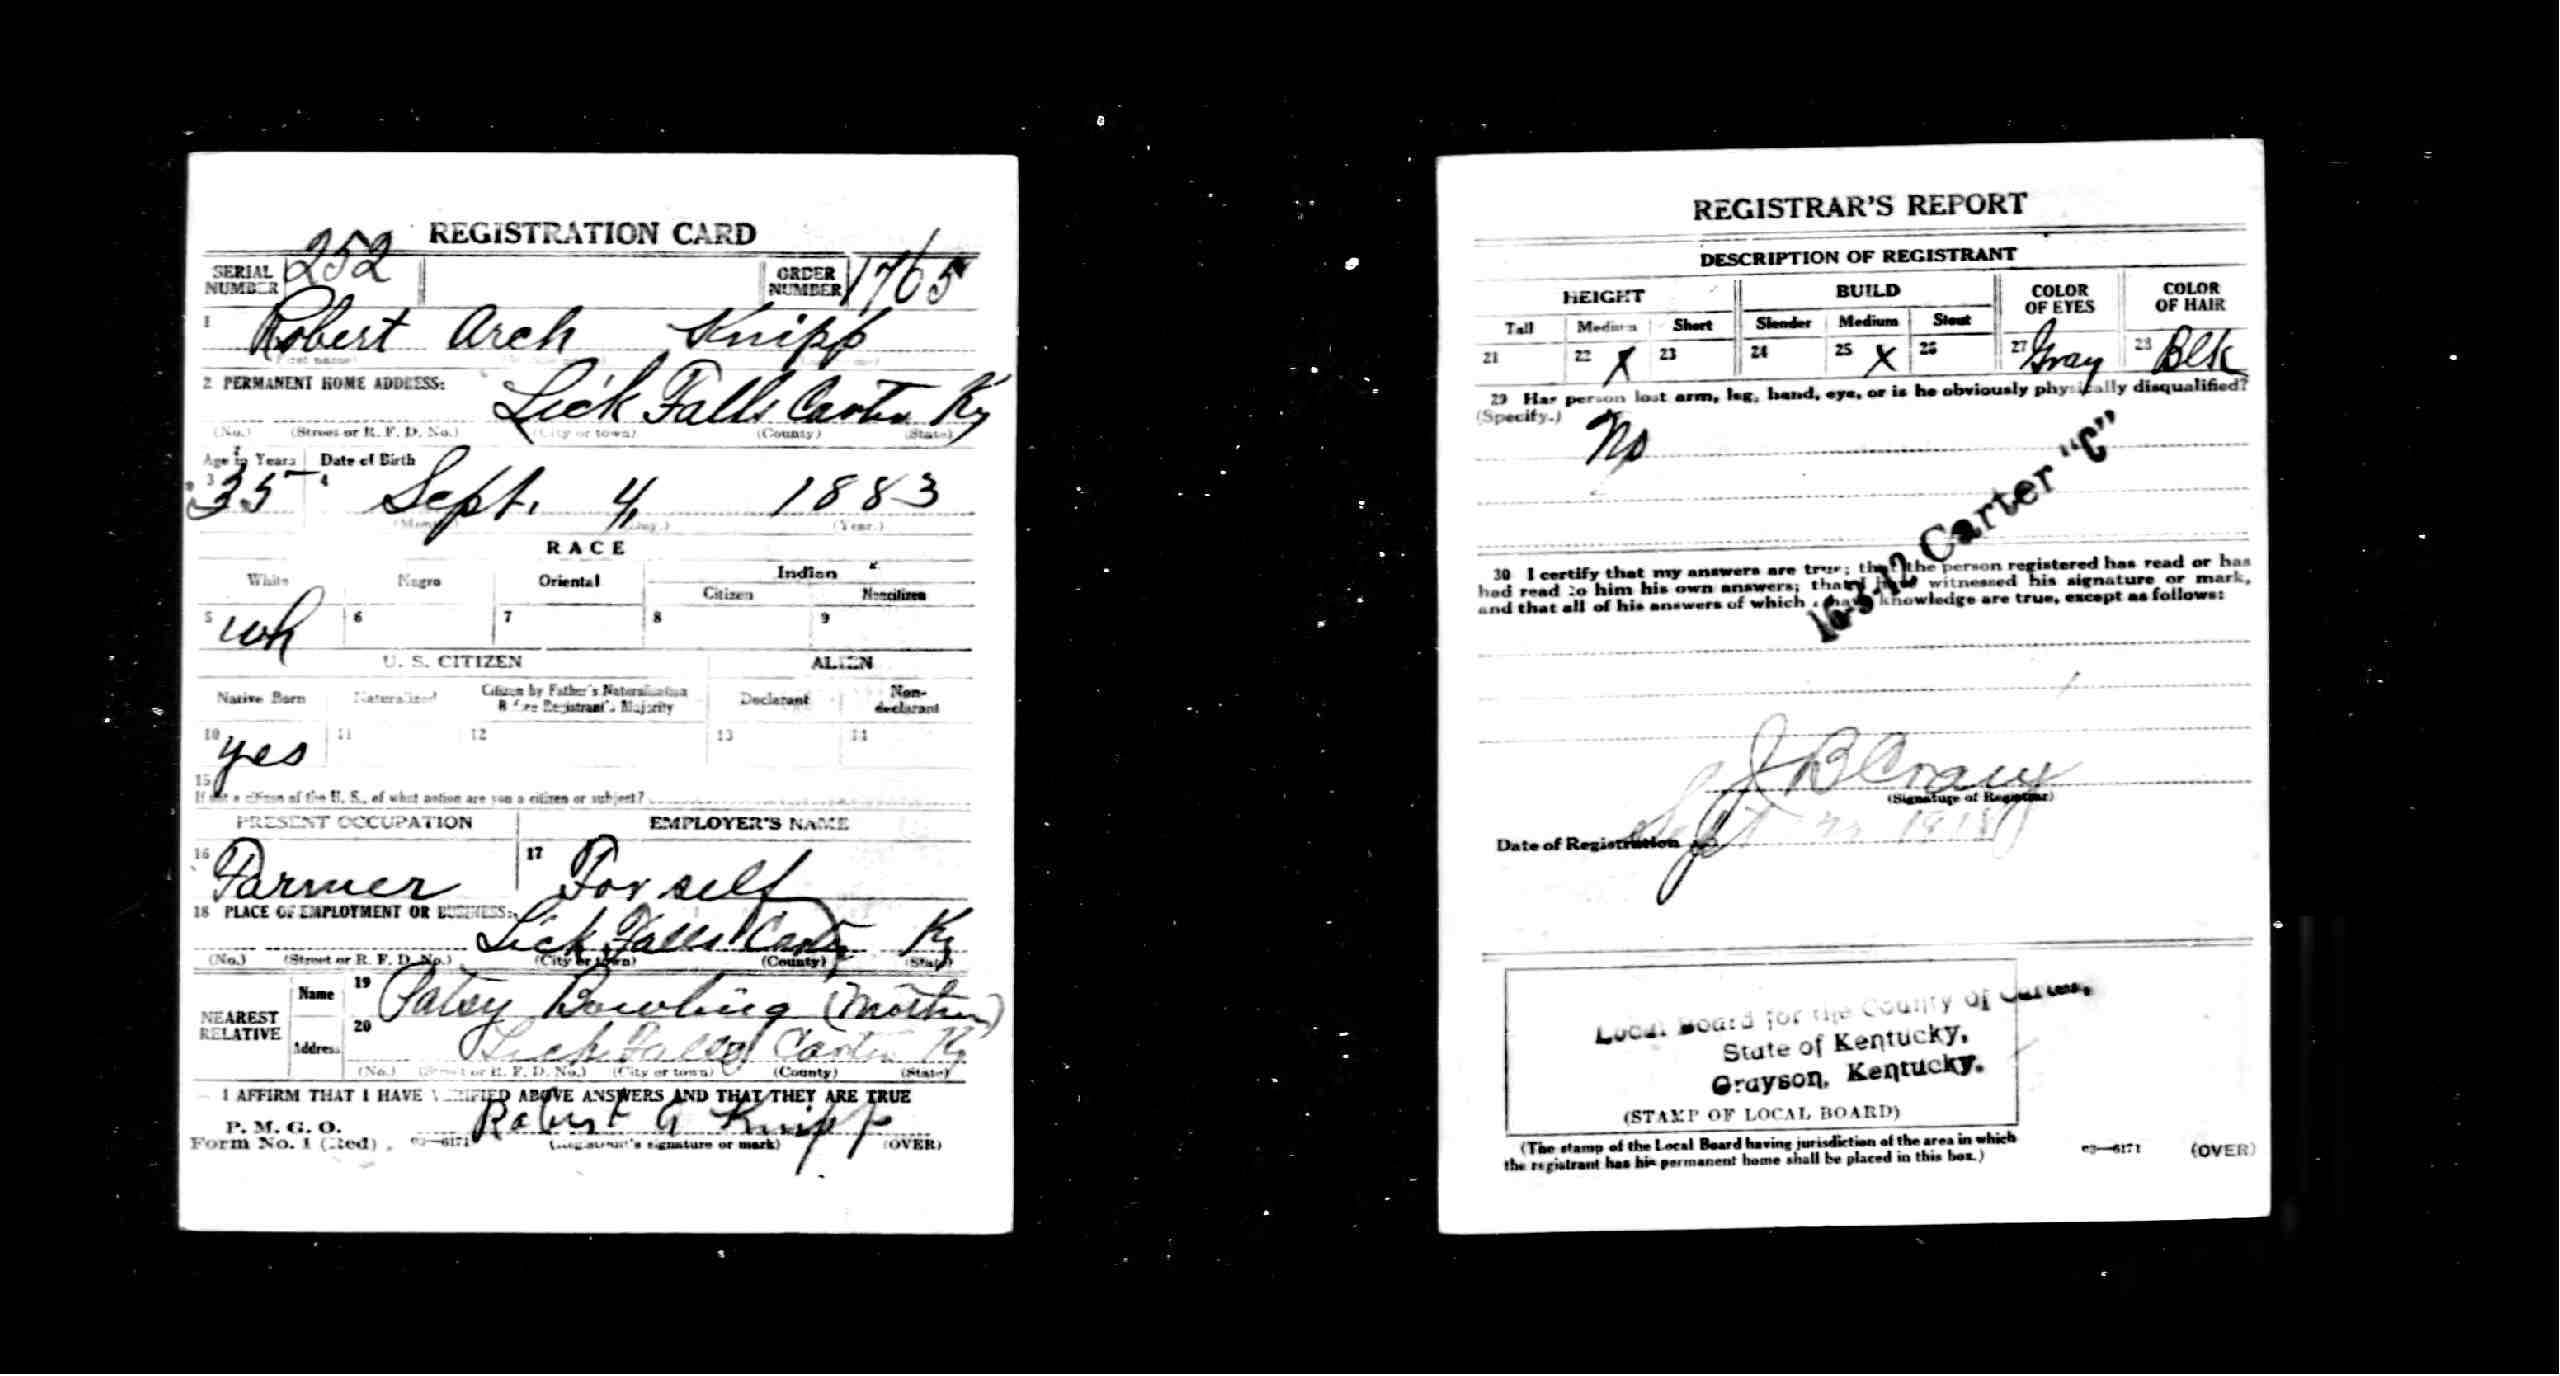 REGISTRATION CARD
SERIAL NUMBER 252 ORDER NUMBER 1765
1 Robert Arch Knipp
(First name)
2 PERMANENT HOME ADDRESS:
Lick Falls Carter Ky
(No.) (Street or R. F. D. No.) (City or town) (County) (State)
Age in Years Date of Birth
3 35 4 Sept. 4, 1883
(Month.) (Day.) (Year.)
RACE
White Negro Oriental Indian
Citizen Noncitizen
5 wh 6 7 8 9
U. S. CITIZEN ALIEN
Native Born Naturalized Citizen by Father's Naturalization Before Registrant's Majority Declarant Non-declarant
10 yes 11 12 13 14
15
If not a citizen of the U. S., of what nation are you a citizen or subject?
PRESENT OCCUPATION EMPLOYER'S NAME
16 Farmer 17 For self
18 PLACE OF EMPLOYMENT OR BUSINESS:
Lick Falls Carter Ky
(No.) (Street or R. F. D. No.) (City or town) (County) (State)
NEAREST RELATIVE Name 19 Patsy Bowling (Mother)
Address 20 Lick Falls Carter Ky
(No.) (Street or R. F. D. No.) (City or town) (County) (State)
I AFFIRM THAT I HAVE VERIFIED ABOVE ANSWERS AND THAT THEY ARE TRUE
P. M. G. O.
Form No. 1 (Red) 03—6171 Robert A Knipp
(Registrant's signature or mark) (OVER)
REGISTRAR'S REPORT
DESCRIPTION OF REGISTRANT
HEIGHT BUILD COLOR OF EYES COLOR OF HAIR
Tall Medium Short Slender Medium Stout
21 22 X 23 24 25 X 26 27 Gray 28 Blk
29 Has person lost arm, leg, hand, eye, or is he obviously physically disqualified?
(Specify.)
No
16-3-12 Carter "C"
30 I certify that my answers are true; that the person registered has read or has
had read to him his own answers; that I have witnessed his signature or mark,
and that all of his answers of which I have knowledge are true, except as follows:
J B
(Signature of Registrar)
Date of Registration Sept 1918
Local Board for the County of Carter,
State of Kentucky,
Grayson, Kentucky.
(STAMP OF LOCAL BOARD)
(The stamp of the Local Board having jurisdiction of the area in which
the registrant has his permanent home shall be placed in this box.)
03—6171 (OVER)